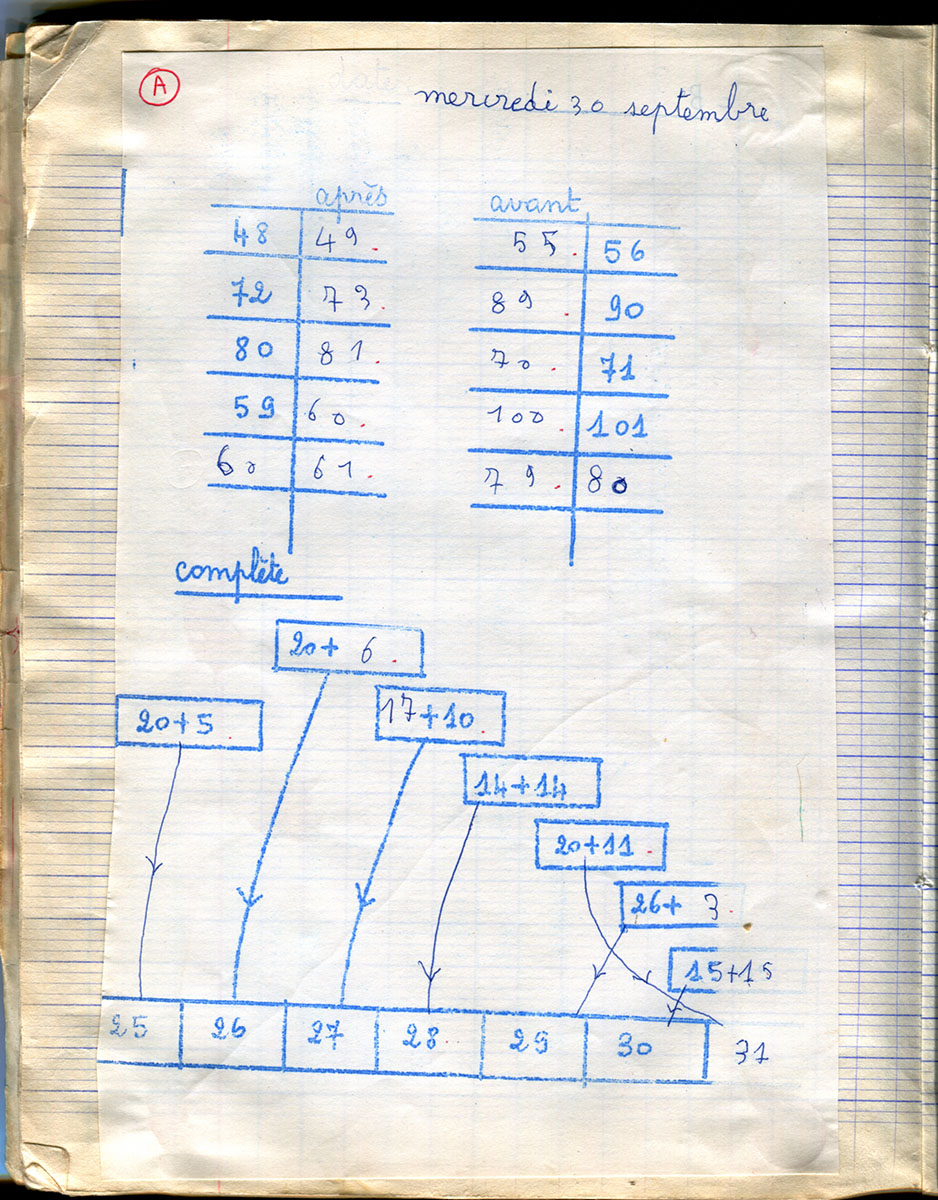 A
mercredi 30 septembre
après
48 49
72 73
80 81
59 60
60 61
avant
55 56
89 90
70 71
100 101
79 80
complète
20+ 6
20+5
17+10
14+14
20+11
26+ 3
15+15
25 26 27 28 29 30 31